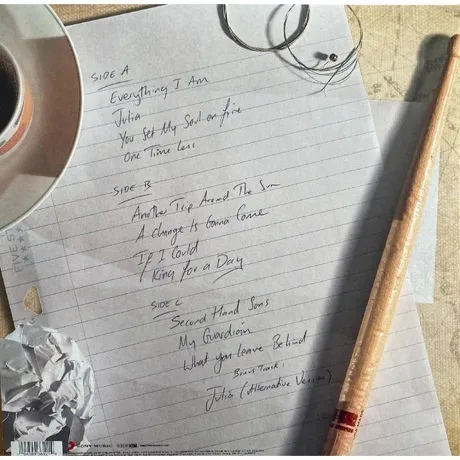 SIDE A
Everything I Am
Julia
You Set My Soul on fire
One Time Less
SIDE B
Another Trip Around The Sun
A Change Is Gonna Come
If I Could
King for a Day
SIDE C
Second Hand Sons
My Guardian
What you Leave Behind
Bonus Track:
Julia (Alternative Version)
SONY MUSIC